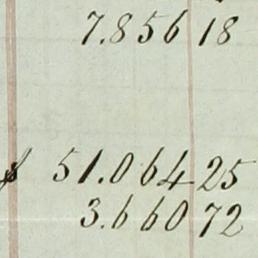 7.856 18
$ 51.064 25
3.660 72